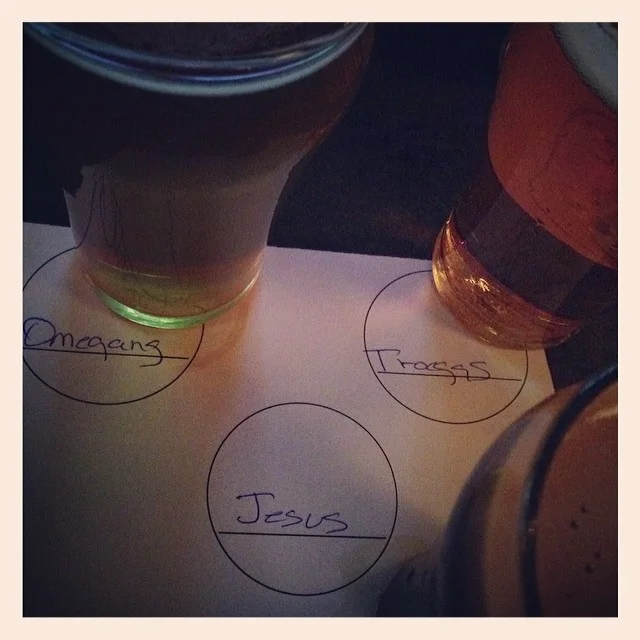 Omegang
Troggs
Jesus